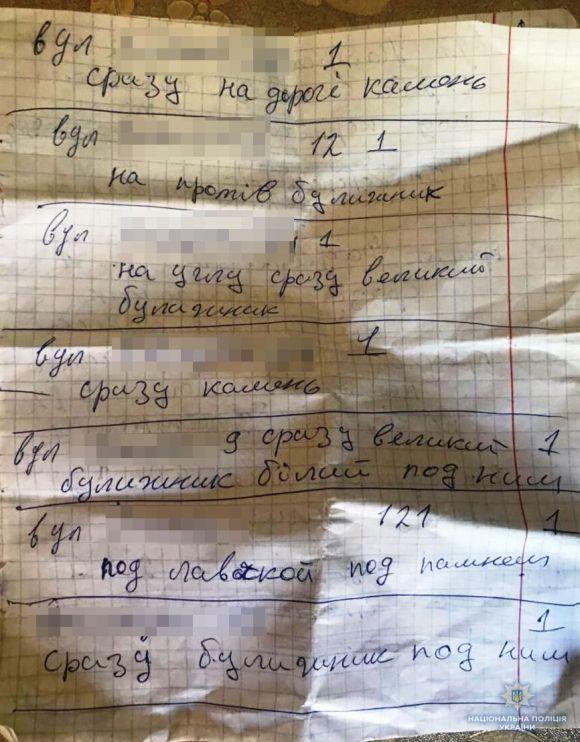 вул 1
сразу на дорогі камень
вул 12 1
на протів булижник
вул 1
на углу сразу великий
булижник
вул 1
сразу камень
вул д сразу великий 1
булижник білий под ним
вул 121 1
под лавкой под памнем
1
сразу булижник под ним
НАЦІОНАЛЬНА ПОЛІЦІЯ
УКРАЇНИ